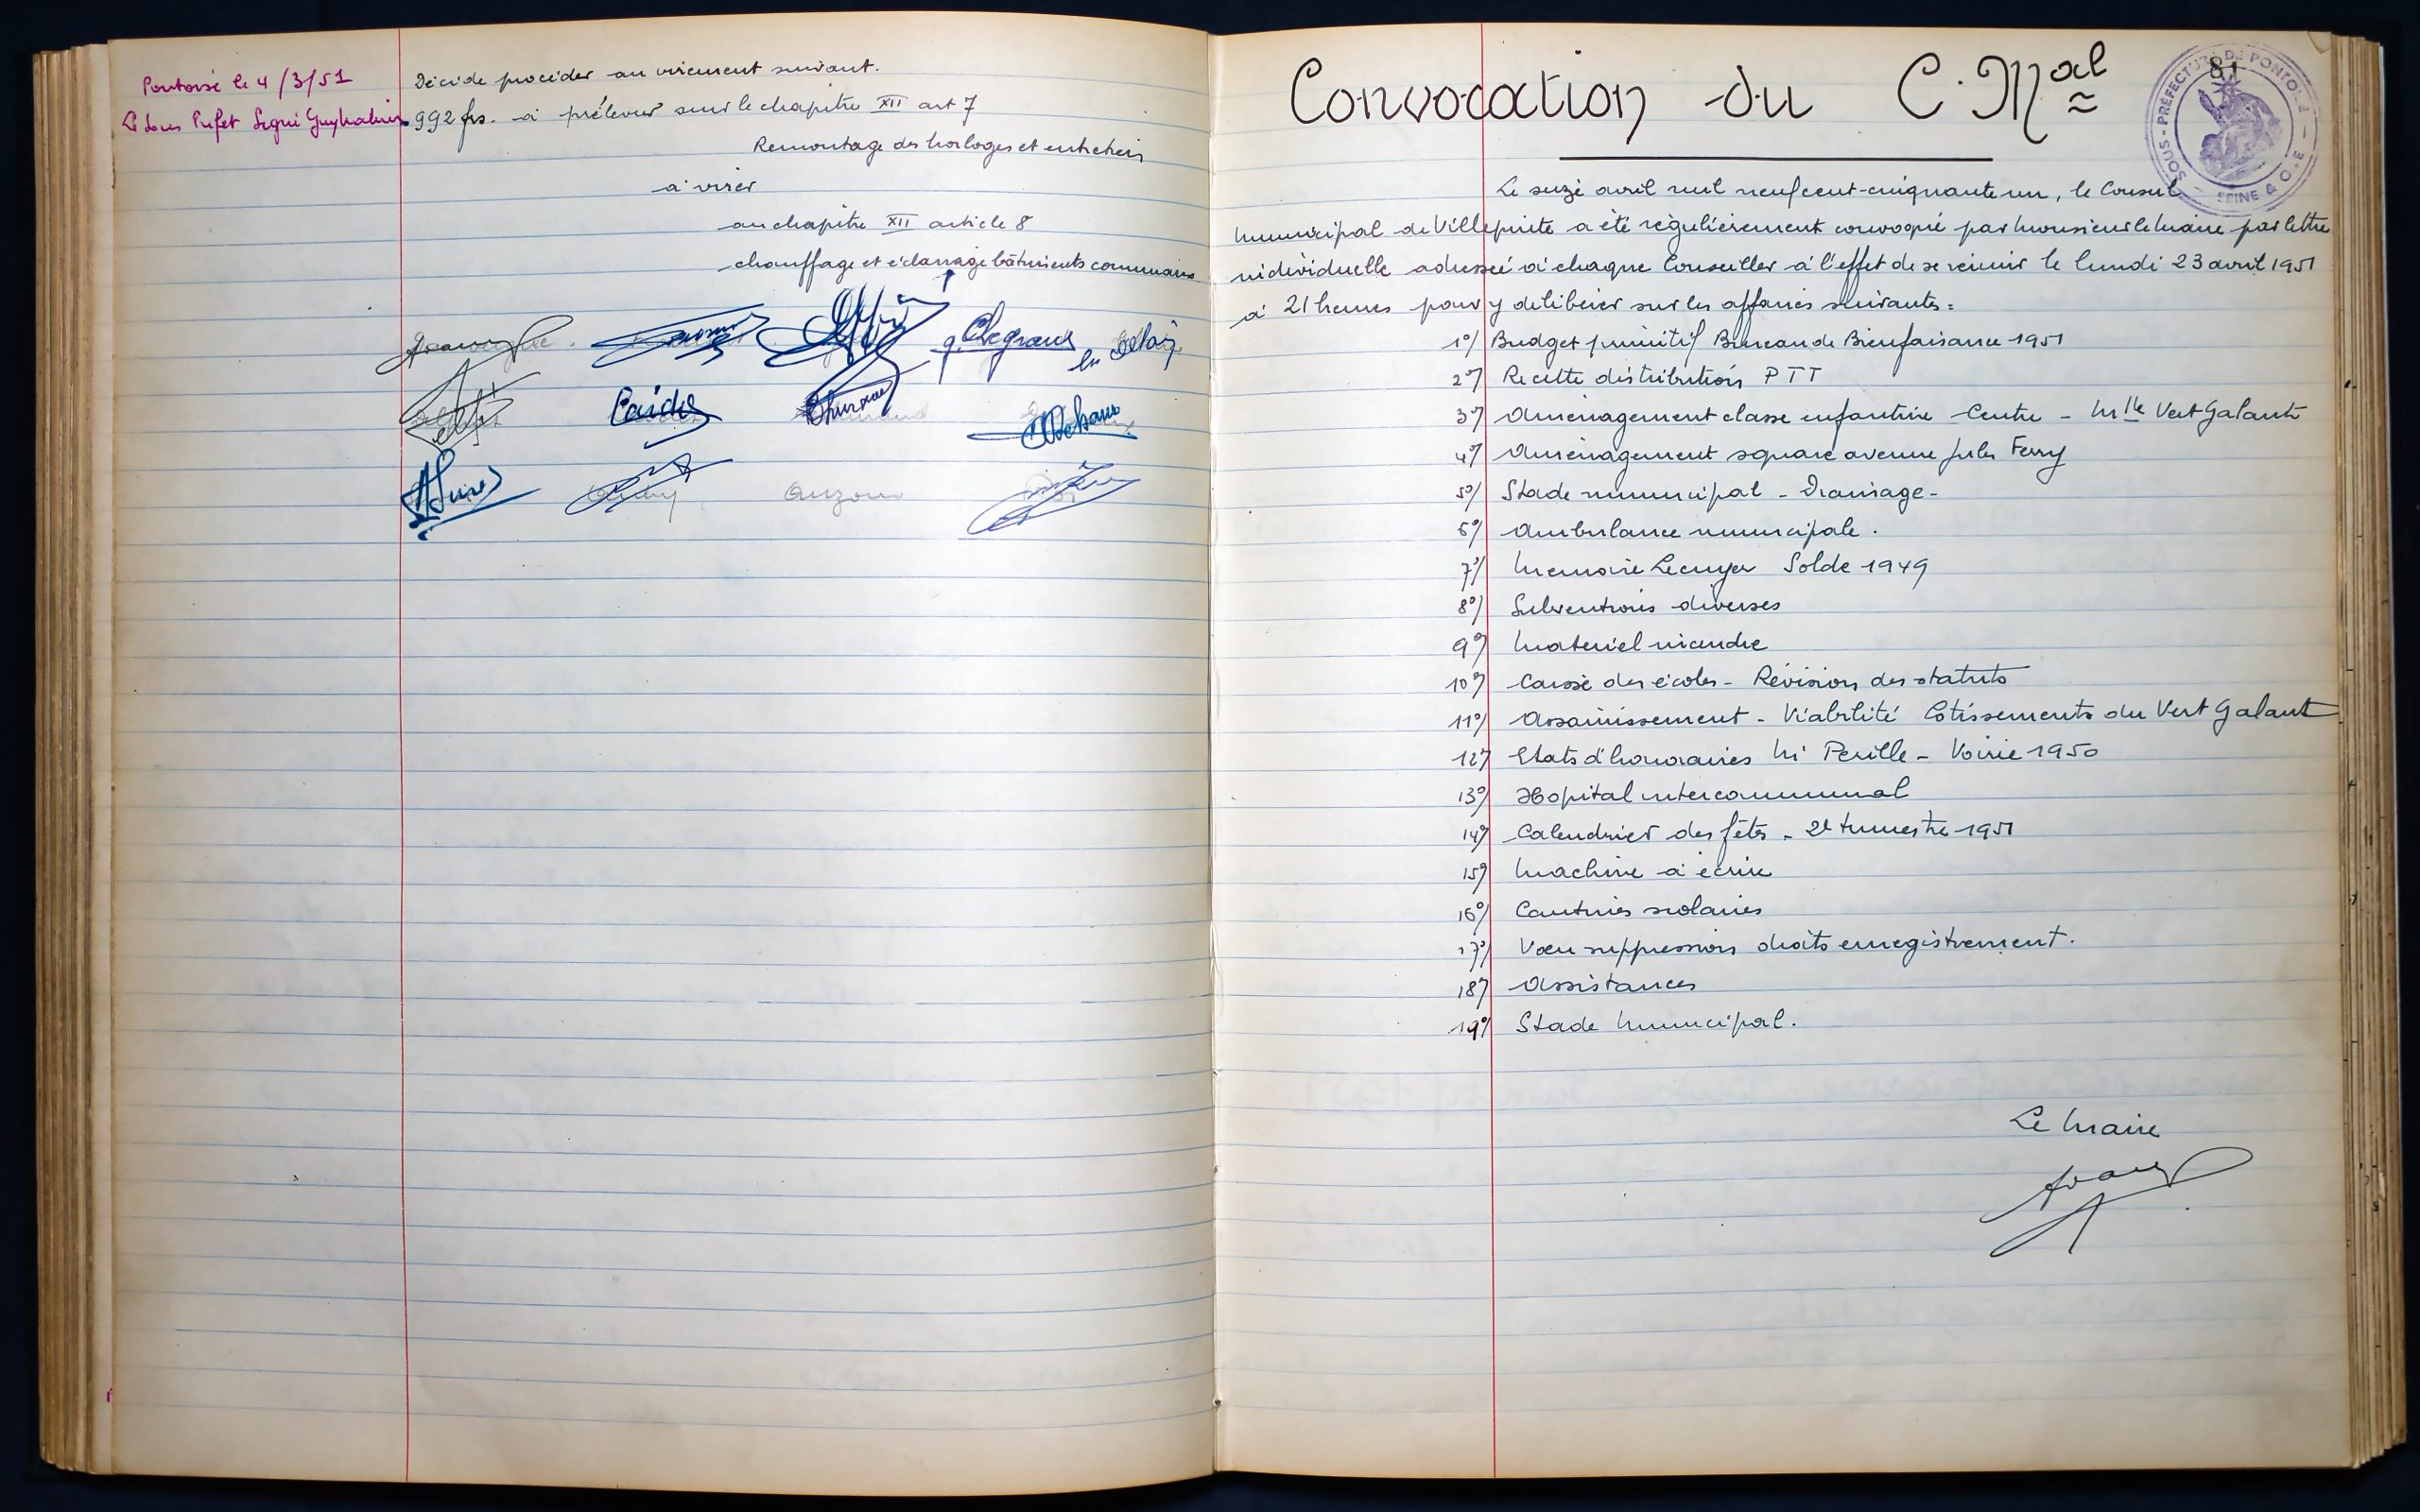 Pontoise le 4/3/51
Le Sous Préfet Signé
Décide procéder au virement suivant.
992 frs. à prélever sur le chapitre XII art 7
Remontage des horloges et entretien
à virer
au chapitre XII article 8
chauffage et éclairage bâtiments communaux
Legrand
Caidos
Auzou
Convocation du C. Mal
81
SOUS-PRÉFECTURE DE PONTOISE
SEINE & O.
Le seize avril mil neuf cent-cinquante un, le Conseil
Municipal de Villepinte a été régulièrement convoqué par Monsieur le Maire par lettre
individuelle adressée à chaque Conseiller à l'effet de se réunir le lundi 23 avril 1951
à 21 heures pour y délibérer sur les affaires suivantes :
1°/ Budget primitif Bureau de Bienfaisance 1951
2°/ Recette distribution PTT
3°/ Aménagement classe enfantine Centre - Mlle Vert Galant
4°/ Aménagement square avenue Jules Ferry
5°/ Stade municipal - Drainage -
6°/ Ambulance municipale.
7°/ Mémoire Lecuyer Solde 1949
8°/ Subventions diverses
9°/ Matériel incendie
10°/ Caisse des écoles - Révision des statuts
11°/ Assainissement - Viabilité Lotissements du Vert Galant
12°/ Etats d'honoraires Mr Perille - Voirie 1950
13°/ Hopital intercommunal
14°/ Calendrier des fêtes - 2e trimestre 1951
15°/ Machine à écrire
16°/ Cantines scolaires
17°/ Vœu suppression droits enregistrement.
18°/ Assistances
19°/ Stade Municipal.
Le Maire